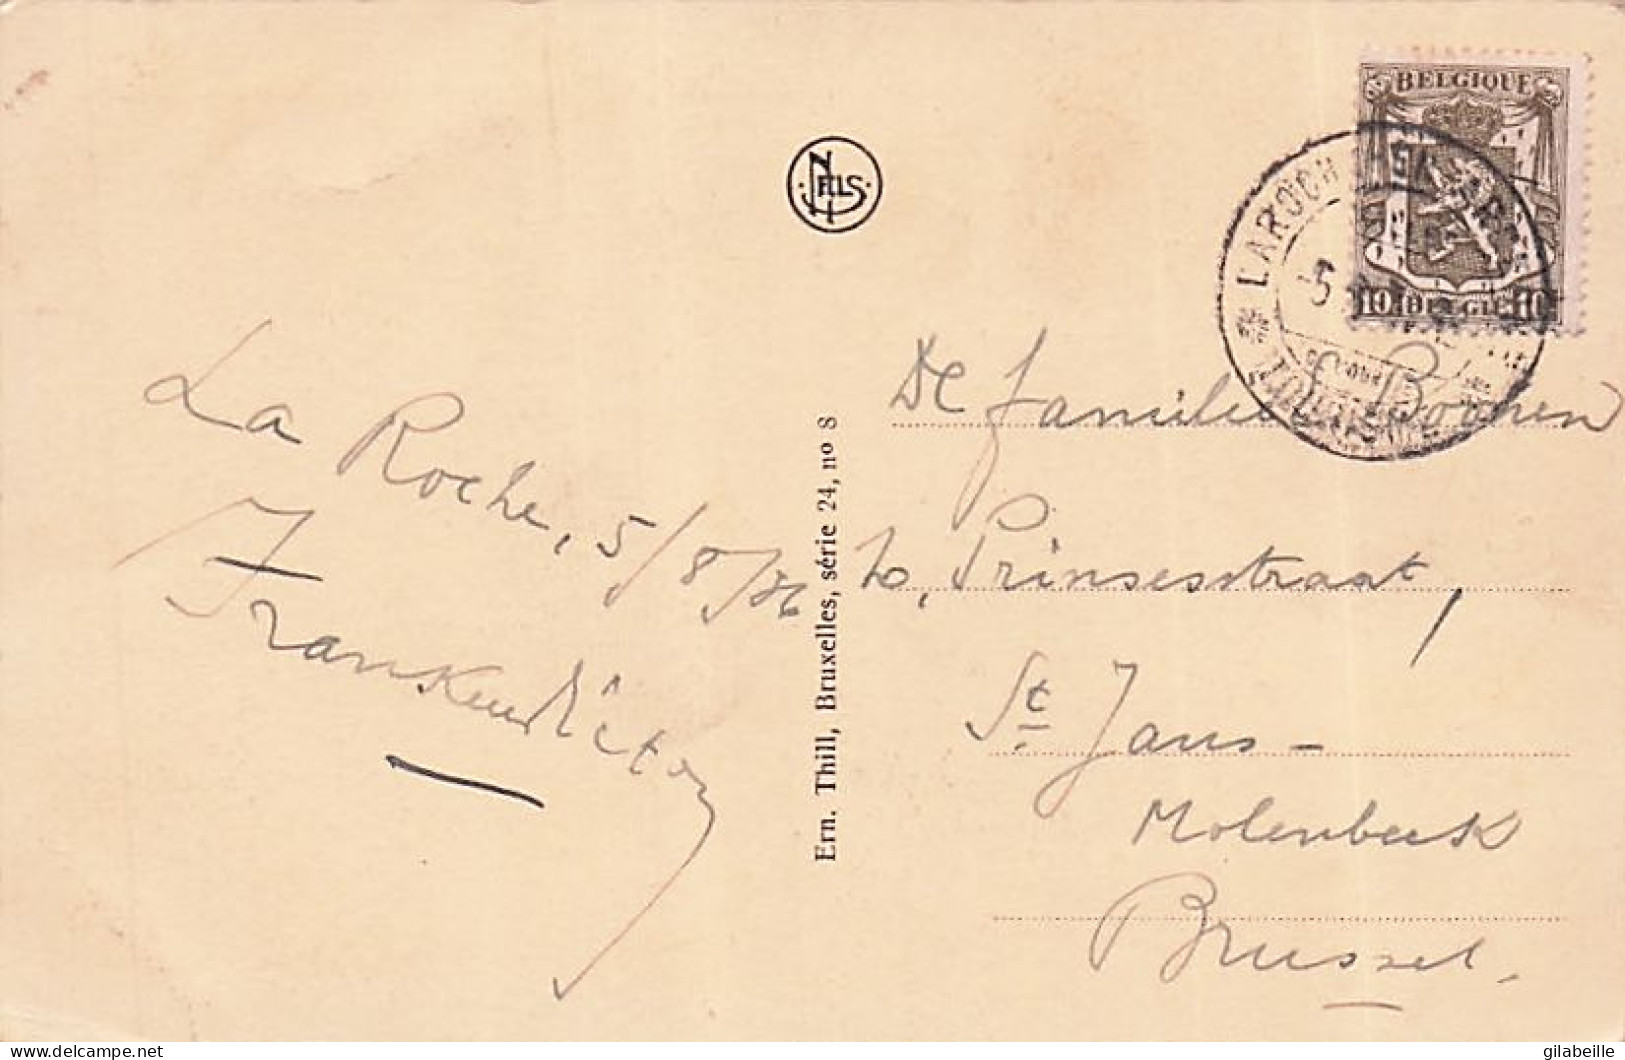 NELS
BELGIQUE
10 BELGIE 10
LAROCH
-5
La Roche, 5/8/36
De familie Boonen
Prinsesstraat,
St Jans-
Molenbeek
Brussel.
Ern. Thill, Bruxelles, série 24, nº 8
gilabeille
delcampe.net